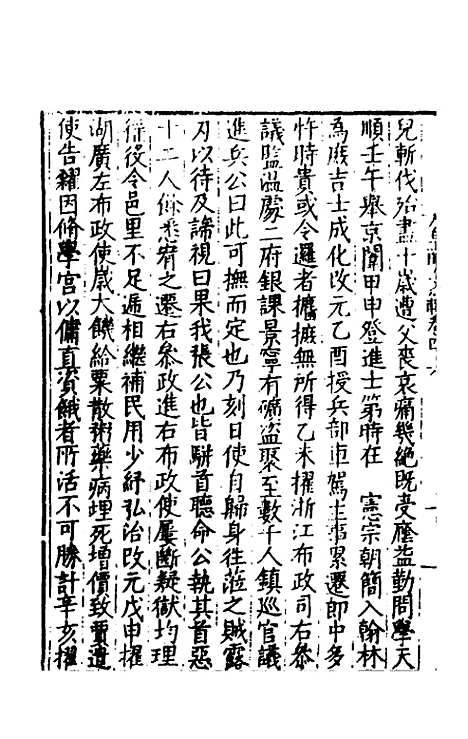 兒斬伐殆盡十歲遭父喪哀痛幾絕既受廕益勤問學天
順壬午舉京闈甲申登進士第時在　憲宗朝簡入翰林
為庶吉士成化改元乙酉授兵部車駕主事累遷郎中多
忤時貴或令邏者攟摭無所得乙未擢浙江布政司右參
議監溫處二府銀課景寧有礦盗聚至數千人鎮巡官議
進兵公曰此可撫而定也乃刻日使自歸身往蒞之賊露
刃以待及諦視曰果我張公也皆駢首聽命公執其首惡
十二人餘悉宥之遷右參政進右布政使屢斷疑獄均理
徭役令邑里不足遞相繼補民用少紓弘治改元戊申擢
湖廣左布政使歲大饑給粟散粥藥病埋死增價致賈遣
使告糴因脩學宮以傭直資餓者所活不可勝計辛亥擢